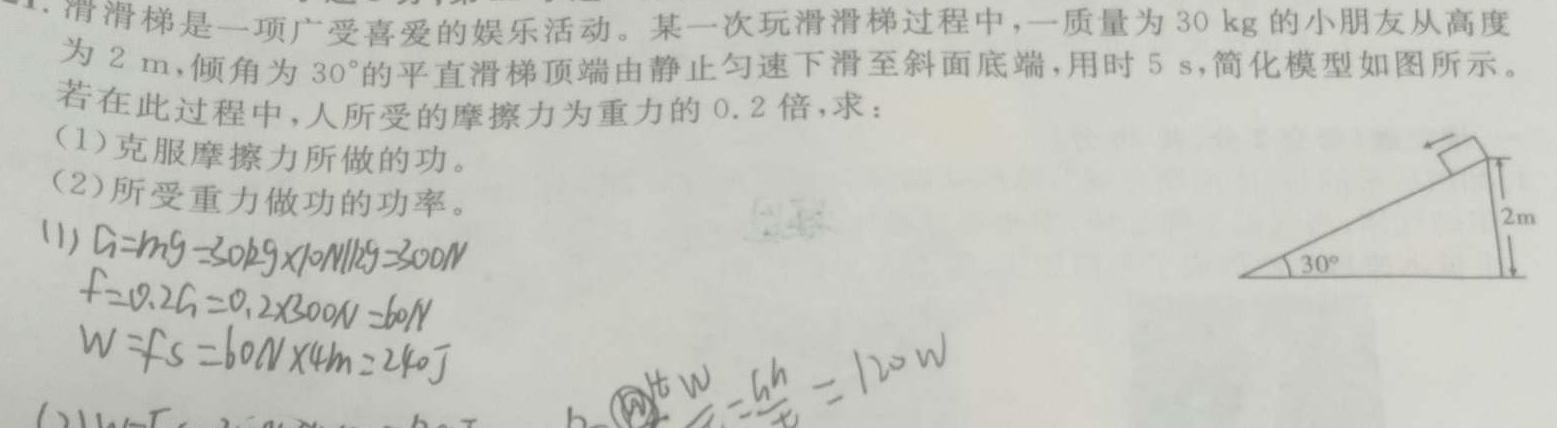 滑滑梯是一项广受喜爱的娱乐活动。某一次玩滑滑梯过程中,一质量为 30 kg 的小朋友从高度
为 2 m,倾角为 30°的平直滑梯顶端由静止匀速下滑至斜面底端,用时 5 s,简化模型如图所示。
若在此过程中,人所受的摩擦力为重力的 0.2 倍,求:
(1)克服摩擦力所做的功。
(2)所受重力做功的功率。
2m
30°
(1) G=mg=30kg×10N/kg=300N
f=0.2G=0.2×300N=60N
W=fs=60N×4m=240J
W =Gh/t =120W